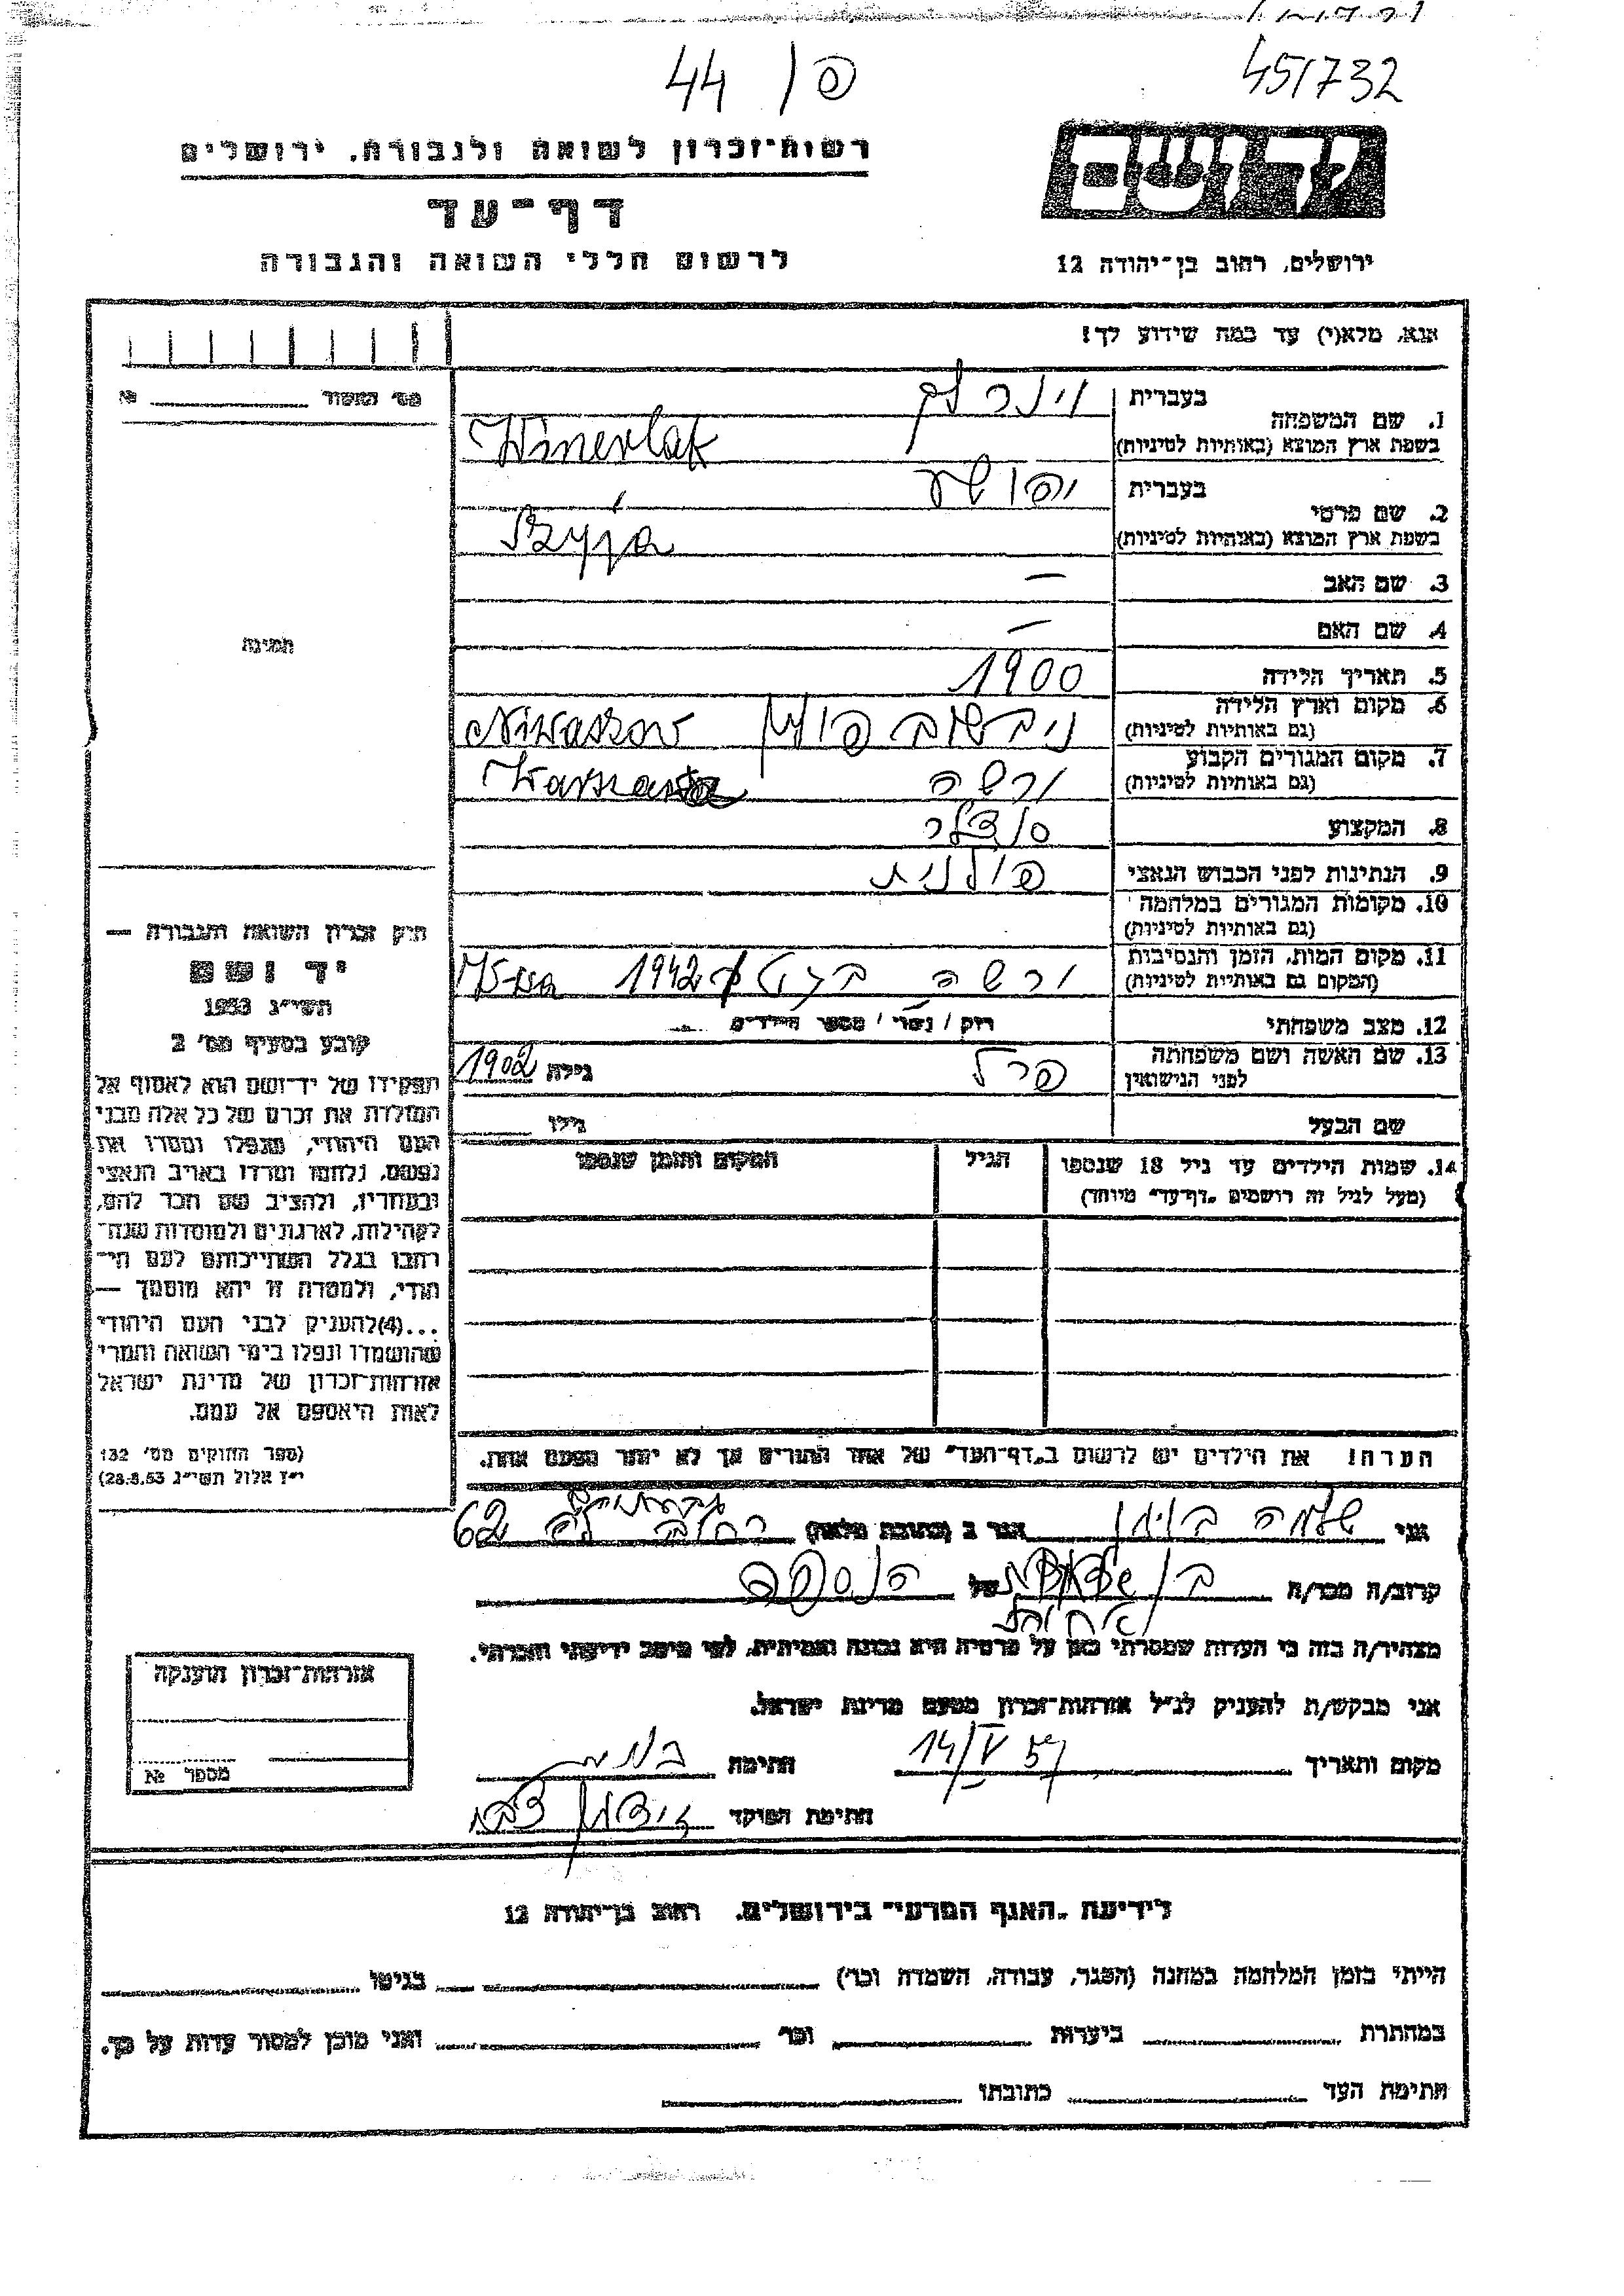 451732
פ / 44
יד ושם
רשות־זכרון לשואה ולגבורה, ירושלים
דף־עד
לרשום חללי השואה והגבורה
ירושלים, רחוב בן־יהודה 12
אנא, מלא(י) עד כמה שידוע לך!
מס' האשור №
1. שם המשפחה
בעברית
בשפת ארץ המוצא (באותיות לטיניות) Winerlak
2. שם פרטי
בעברית
בשפת ארץ המוצא (באותיות לטיניות)
3. שם האב —
4. שם האם —
5. תאריך הלידה 1900
6. מקום וארץ הלידה
(גם באותיות לטיניות) פולין Niwaszow
7. מקום המגורים הקבוע
(גם באותיות לטיניות) ורשה
8. המקצוע סנדלר
9. הנתינות לפני הכבוש הנאצי פולנית
10. מקומות המגורים במלחמה
(גם באותיות לטיניות)
11. מקום המות, הזמן והנסיבות
(המקום גם באותיות לטיניות) ורשה 1942
12. מצב משפחתי רוק / נשוי / מספר הילדים
13. שם האשה ושם משפחתה
לפני הנישואין פרל גילה 1902
שם הבעל גילו
14. שמות הילדים עד גיל 18 שנספו
(מעל לגיל זה רושמים "דף־עד" מיוחד)
הגיל
המקום והזמן שנספו
הערה! את הילדים יש לרשום ב"דף־העד" של אחד ההורים אך לא יותר מפעם אחת.
תמונה
חוק זכרון השואה והגבורה —
יד ושם
תשי"ג 1953
קובע בסעיף מס' 2
תפקידו של יד־ושם הוא לאסוף אל
המולדת את זכרם של כל אלה מבני
העם היהודי, שנפלו ומסרו את
נפשם, נלחמו ומרדו באויב הנאצי
ובעוזריו, ולהציב שם וזכר להם,
לקהילות, לארגונים ולמוסדות שנח־
רבו בגלל השתייכותם לעם הי־
הודי, ולמטרה זו יהא מוסמך —
...(4) להעניק לבני העם היהודי
שהושמדו ונפלו בימי השואה והמרי
אזרחות־זכרון של מדינת ישראל
לאות היאספם אל עמם.
(ספר החוקים מס' 132
י"ז אלול תשי"ג 28.8.53)
אני שלמה הגר ב (כתובת מלאה) רחוב 62
קרוב/ה מכר/ה של הנספה
מצהיר/ה בזה כי העדות שמסרתי כאן על פרטיה היא נכונה ואמיתית, לפי מיטב ידיעתי והכרתי.
אני מבקש/ת להעניק לנ"ל אזרחות־זכרון מטעם מדינת ישראל.
מקום ותאריך 14/V 57 חתימה
חתימת הפוקד
אזרחות־זכרון הוענקה
מספר №
לידיעת "האגף המדעי" בירושלים, רחוב בן־יהודה 12
הייתי בזמן המלחמה במחנה (הסגר, עבודה, השמדה וכו') בגיטו
במחתרת ביערות וכו' ואני מוכן למסור עדות על כך.
חתימת העד כתובתו